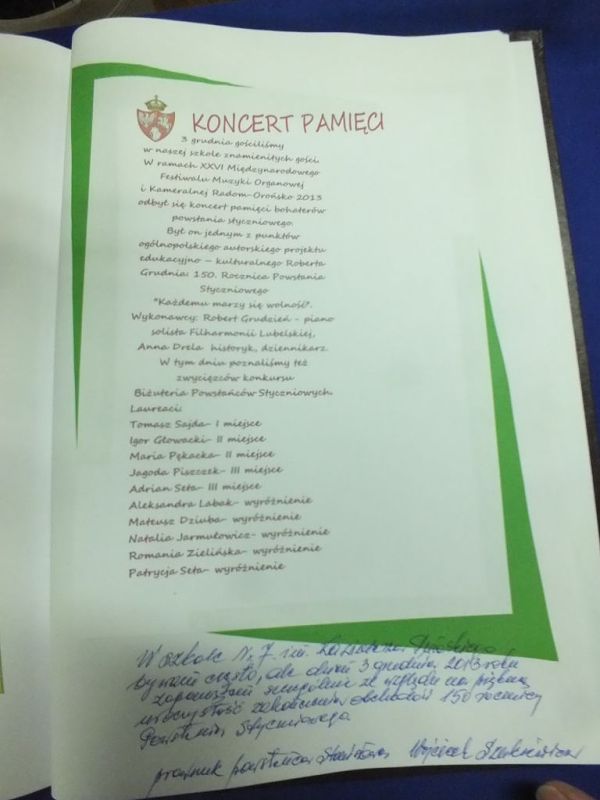 KONCERT PAMIĘCI
3 grudnia gościliśmy
w naszej szkole znamienitych gości.
W ramach XXVI Międzynarodowego
Festiwalu Muzyki Organowej
i Kameralnej Radom-Orońsko 2013
odbył się koncert pamięci bohaterów
powstania styczniowego.
Był on jednym z punktów
ogólnopolskiego autorskiego projektu
edukacyjno – kulturalnego Roberta
Grudnia: 150. Rocznica Powstania
Styczniowego
"Każdemu marzy się wolność".
Wykonawcy: Robert Grudzień - piano
solista Filharmonii Lubelskiej,
Anna Drela historyk, dziennikarz.
W tym dniu poznaliśmy też
zwycięzców konkursu
Biżuteria Powstańców Styczniowych.
Laureaci:
Tomasz Sajda- I miejsce
Igor Głowacki- II miejsce
Maria Pękacka- II miejsce
Jagoda Piszczek- III miejsce
Adrian Seta- III miejsce
Aleksandra Labak- wyróżnienie
Mateusz Dziuba- wyróżnienie
Natalia Jarmułowicz- wyróżnienie
Romania Zielińska- wyróżnienie
Patrycja Seta- wyróżnienie
W szkole Nr 7 im.
bywam często, ale dzień 3 grudnia 2013 roku
zapamiętam szczególnie ze względu na piękną
uroczystość zakończenia obchodów 150 rocznicy
Powstania Styczniowego
prawnuk powstańca Wojciech